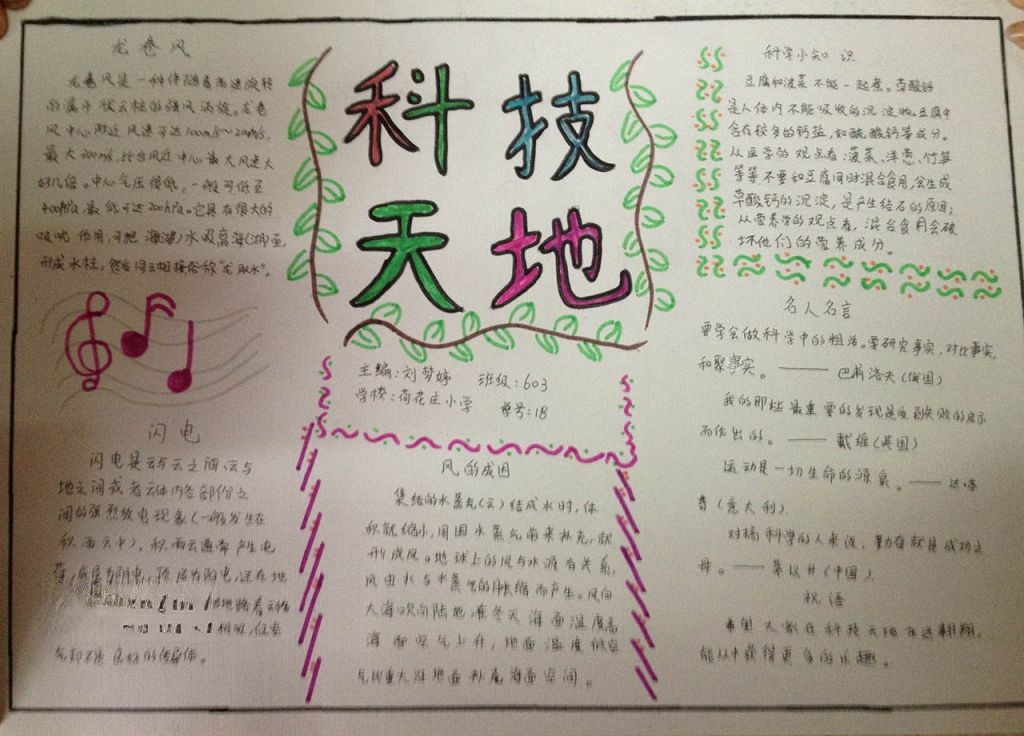 龙卷风
龙卷风是一种伴随着高速旋转
的漏斗状云柱的强风涡旋。龙卷
风中心附近风速可达100m/s~200m/s,
最大300m/s,比台风近中心最大风速大
好几倍。中心气压很低,一般可低至
400hPa,最低可达200hPa。它具有很大的
吸吮作用,可把海(湖)水吸离海(湖)面,
形成水柱,然后同云相接俗称"龙取水"。
科技
天地
主编:刘梦婷 班级:603
学校:荷花庄小学 学号:18
科学小知识
豆腐和菠菜不能一起煮。草酸钙
是人体内不能吸收的沉淀物。豆腐中
含有较多的钙盐,如硫酸钙等成分。
从医学的观点看:菠菜、洋葱、竹笋
等等不要和豆腐同时混合食用,会生成
草酸钙的沉淀,是产生结石的原因;
从营养学的观点看,混合食用会破
坏他们的营养成分。
闪电
闪电是云与云之间、云与
地之间或者云体内各部份之
间的强烈放电现象(一般发生在
积雨云中)。积雨云通常产生电
荷,底层为阴电,顶层为阳电,还在地
相吸,但空
气却不是良好的传导体。
风的成因
集结的水蒸气(云)结成水时,体
积就缩小,周围水蒸气前来补充,就
形成风。地球上的风与水源有关系,
风由水与水蒸气的胀缩而产生。风向
大海吹向陆地在冬天海面温度高
海面空气上升,地面温度低空
气比重大沿地面补充海面空间。
名人名言
要学会做科学中的粗活。要研究事实,对比事实,
和聚事实。——巴甫洛夫(俄国)
我的那些最重要的发现是受到失败的启示
而作出的。——戴维(英国)
运动是一切生命的源泉。——达·芬
奇(意大利)
对搞科学的人来说,勤奋就是成功之
母。——茅以升(中国)
祝语
希望大家在科技天地永远翱翔,
能从中获得更多的乐趣。